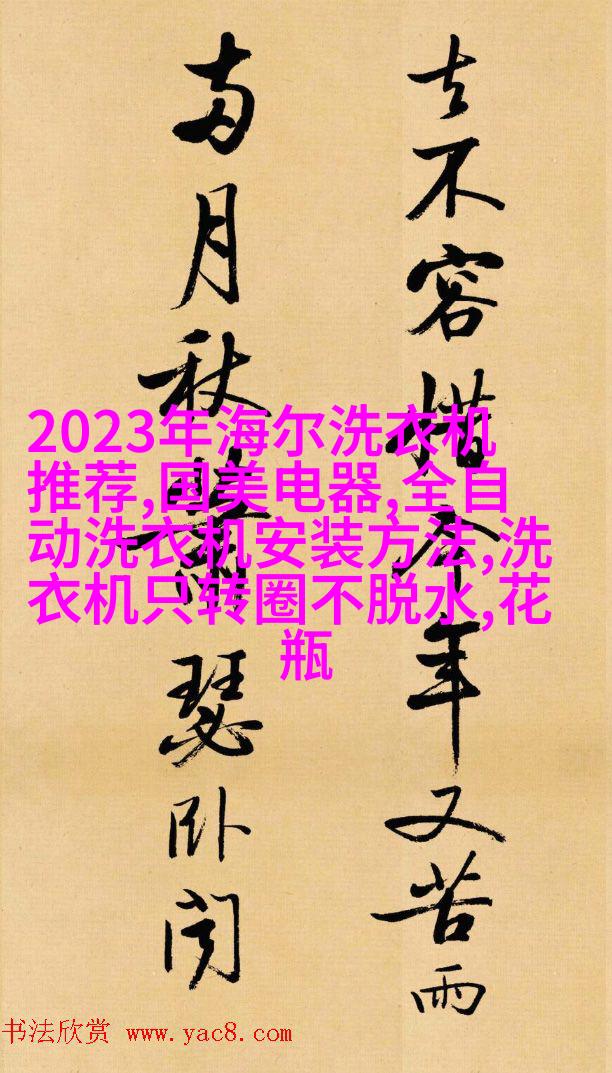 去不容惜今年又苦雨
兩月秋蕭瑟卧聞
2023年海尔洗衣机
推荐,国美电器,全自
动洗衣机安装方法,洗
衣机只转圈不脱水,花
瓶
书法欣赏 www.yac8.com